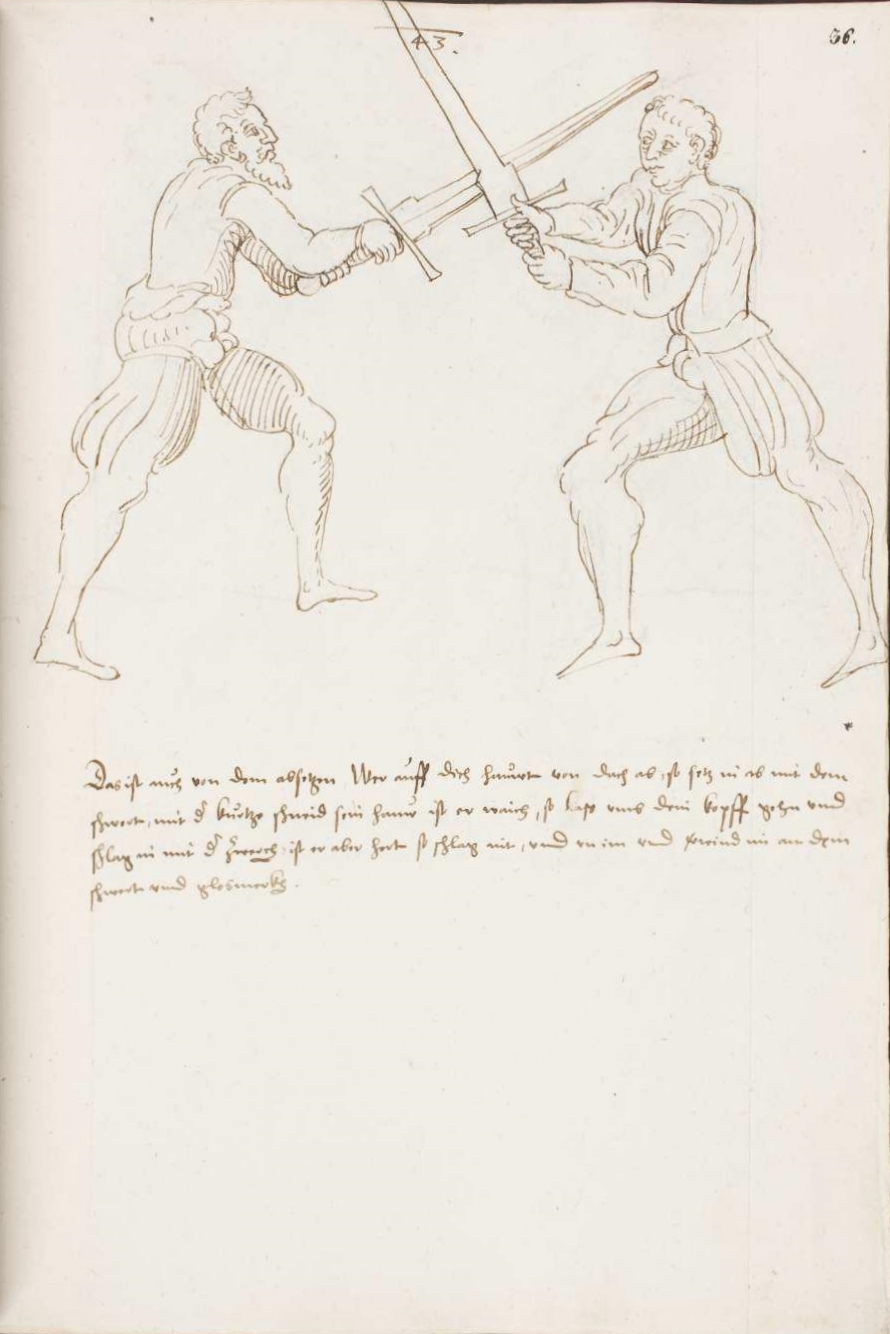 43.
36.
Das ist auch von dem absetzen Wer auff dich hauwt von dach ab, so setz in ab mit dem
schwert, mit d' kurtze schneid sein hauw ist er waich, so lass vmb dein kopff gehn vnd
schlag in mit d' zwerch ist er aber hert so schlag nit, vnd im vnd wind im an dem
schwert vnd